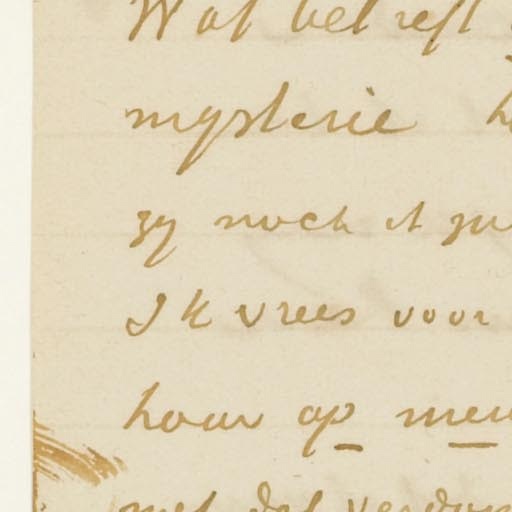 Wat betreft
mysterie h
gy noch it gu
Ik vrees voor
houw op men
met dat verdom